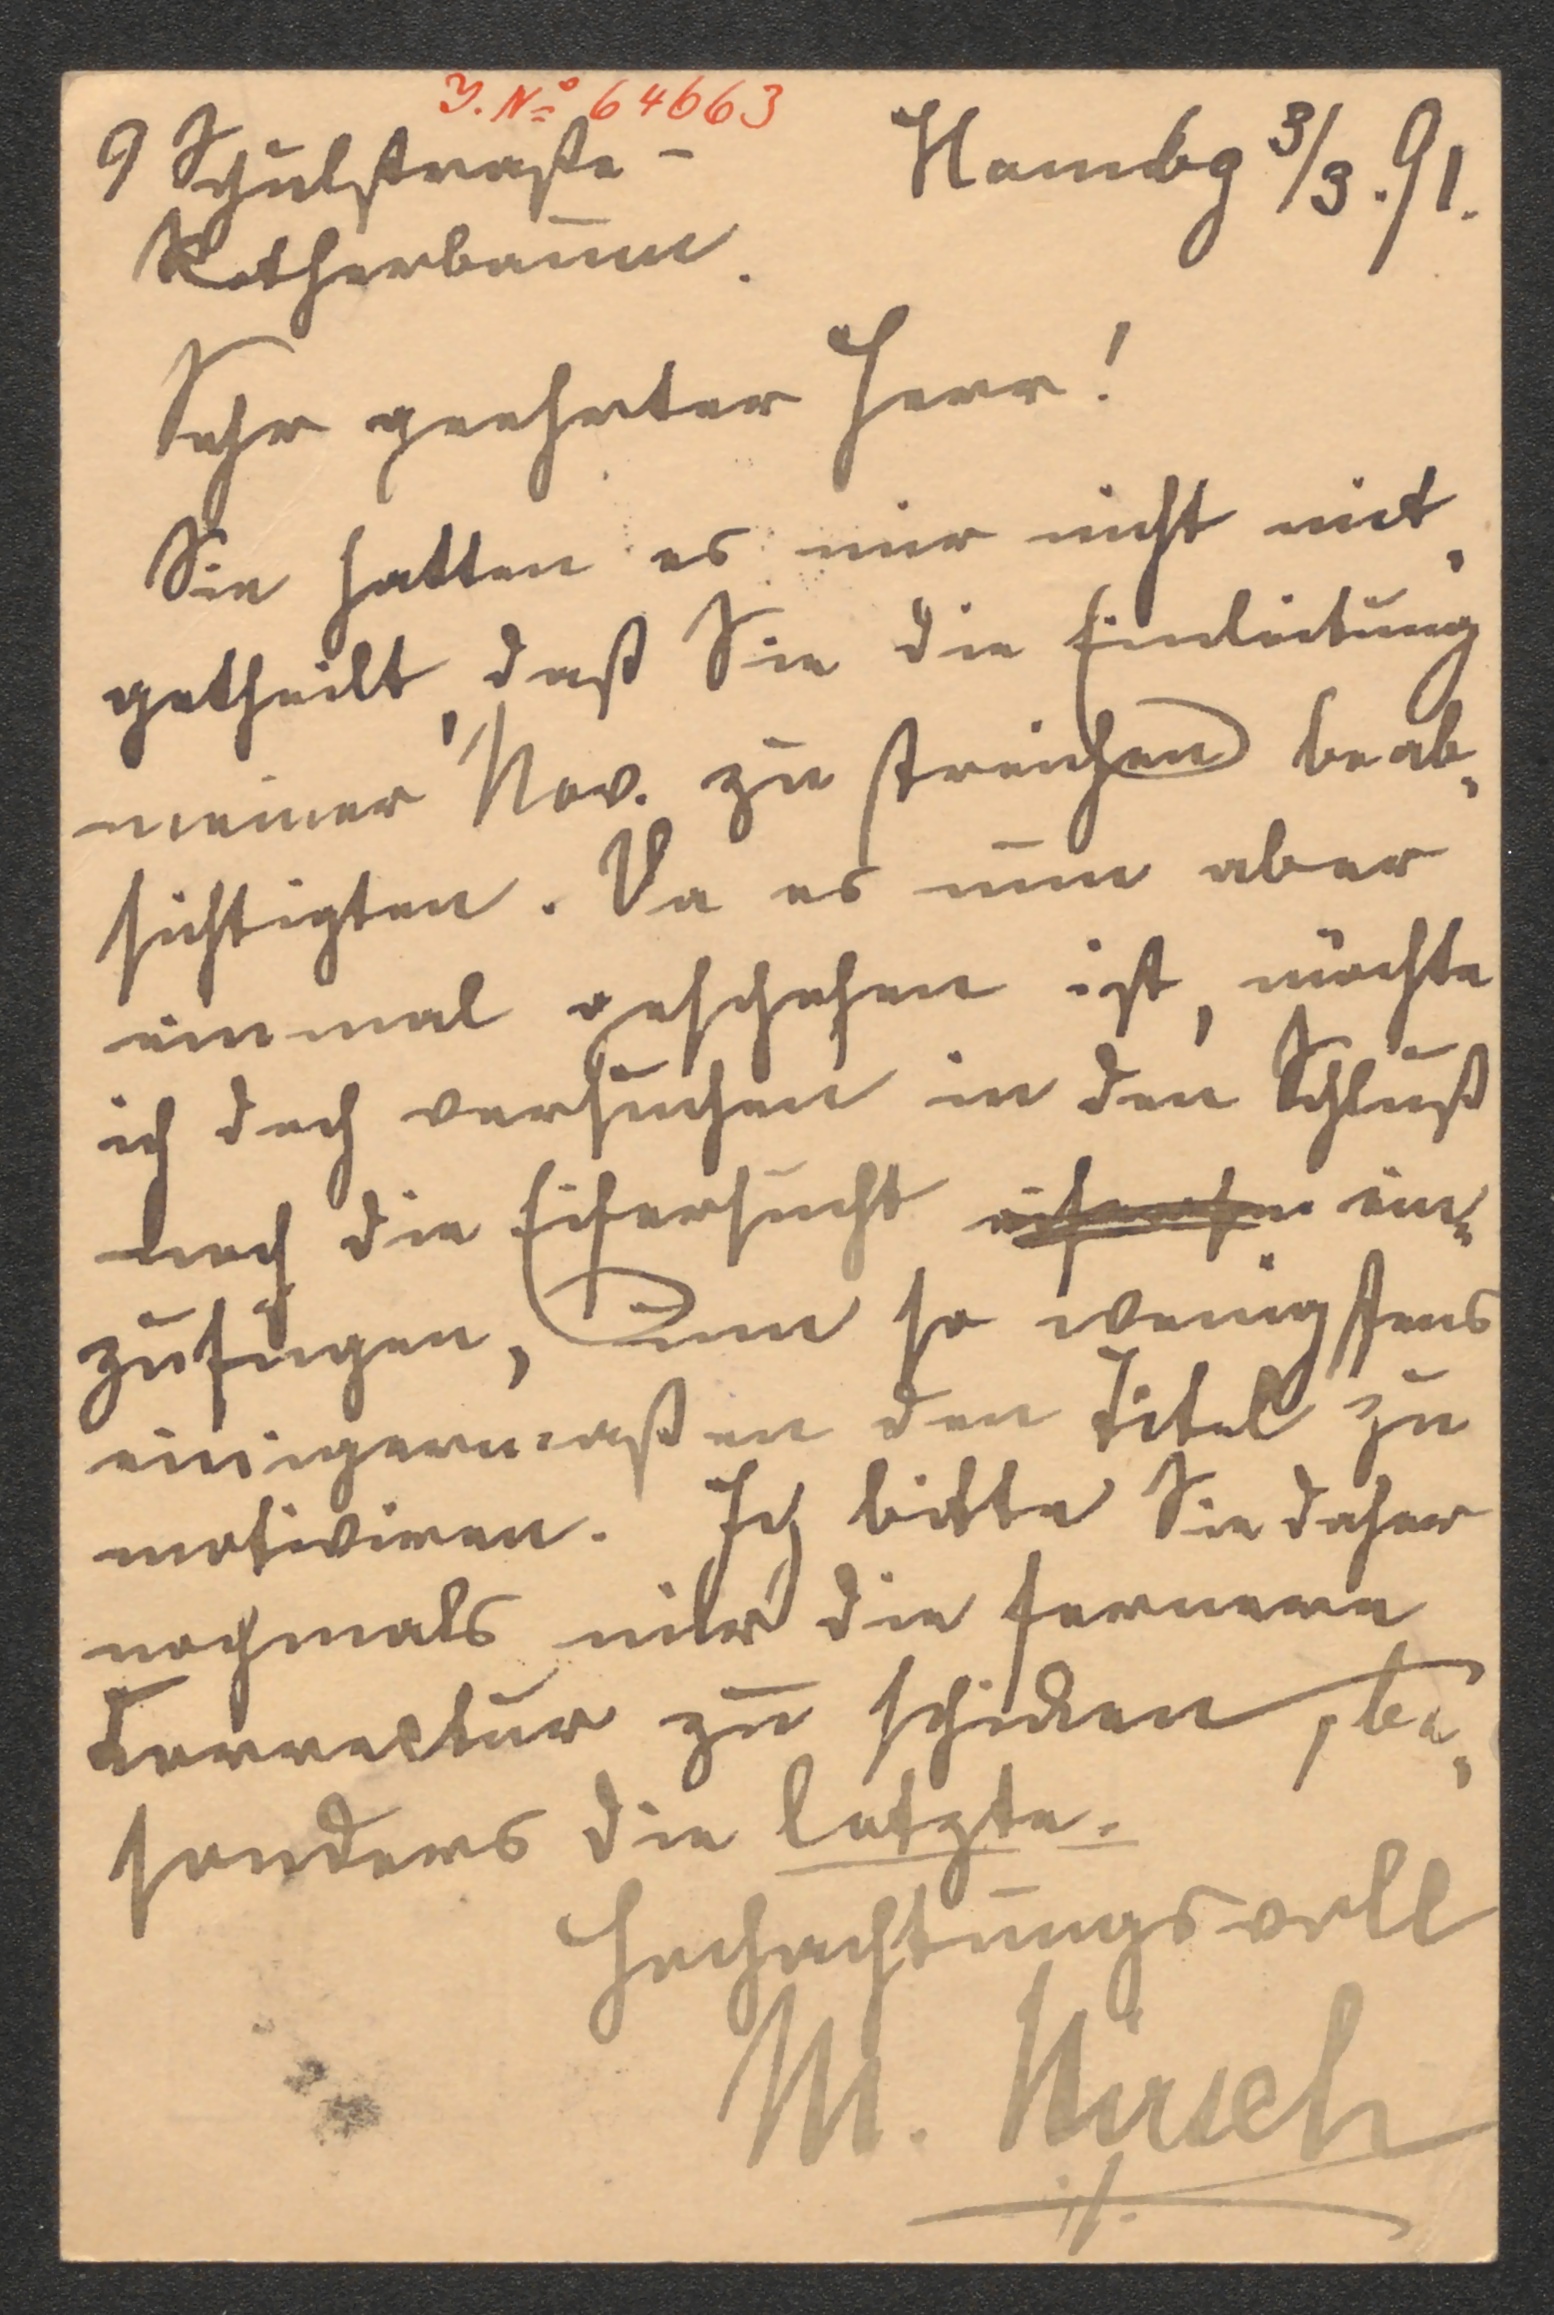 J. No 64663
9 Schulstraße -
Rotherbaum.
Hambg 3/3. 91.
Sehr geehrter Herr!
Sie hatten es mir nicht mit-
getheilt, daß Sie die Einleitung
meiner Nov. zu streichen beab-
sichtigten. Da es nun aber
einmal geschehen ist, möchte
ich doch versuchen in den Schluß
noch die Eifersucht ein-
zufügen, um so wenigstens
einigermaßen den Titel zu
motiviren. Ich bitte Sie daher
nochmals mir die fernere
Correctur zu schicken, be-
sonders die letzte.
Hochachtungsvoll
M. Hirsch